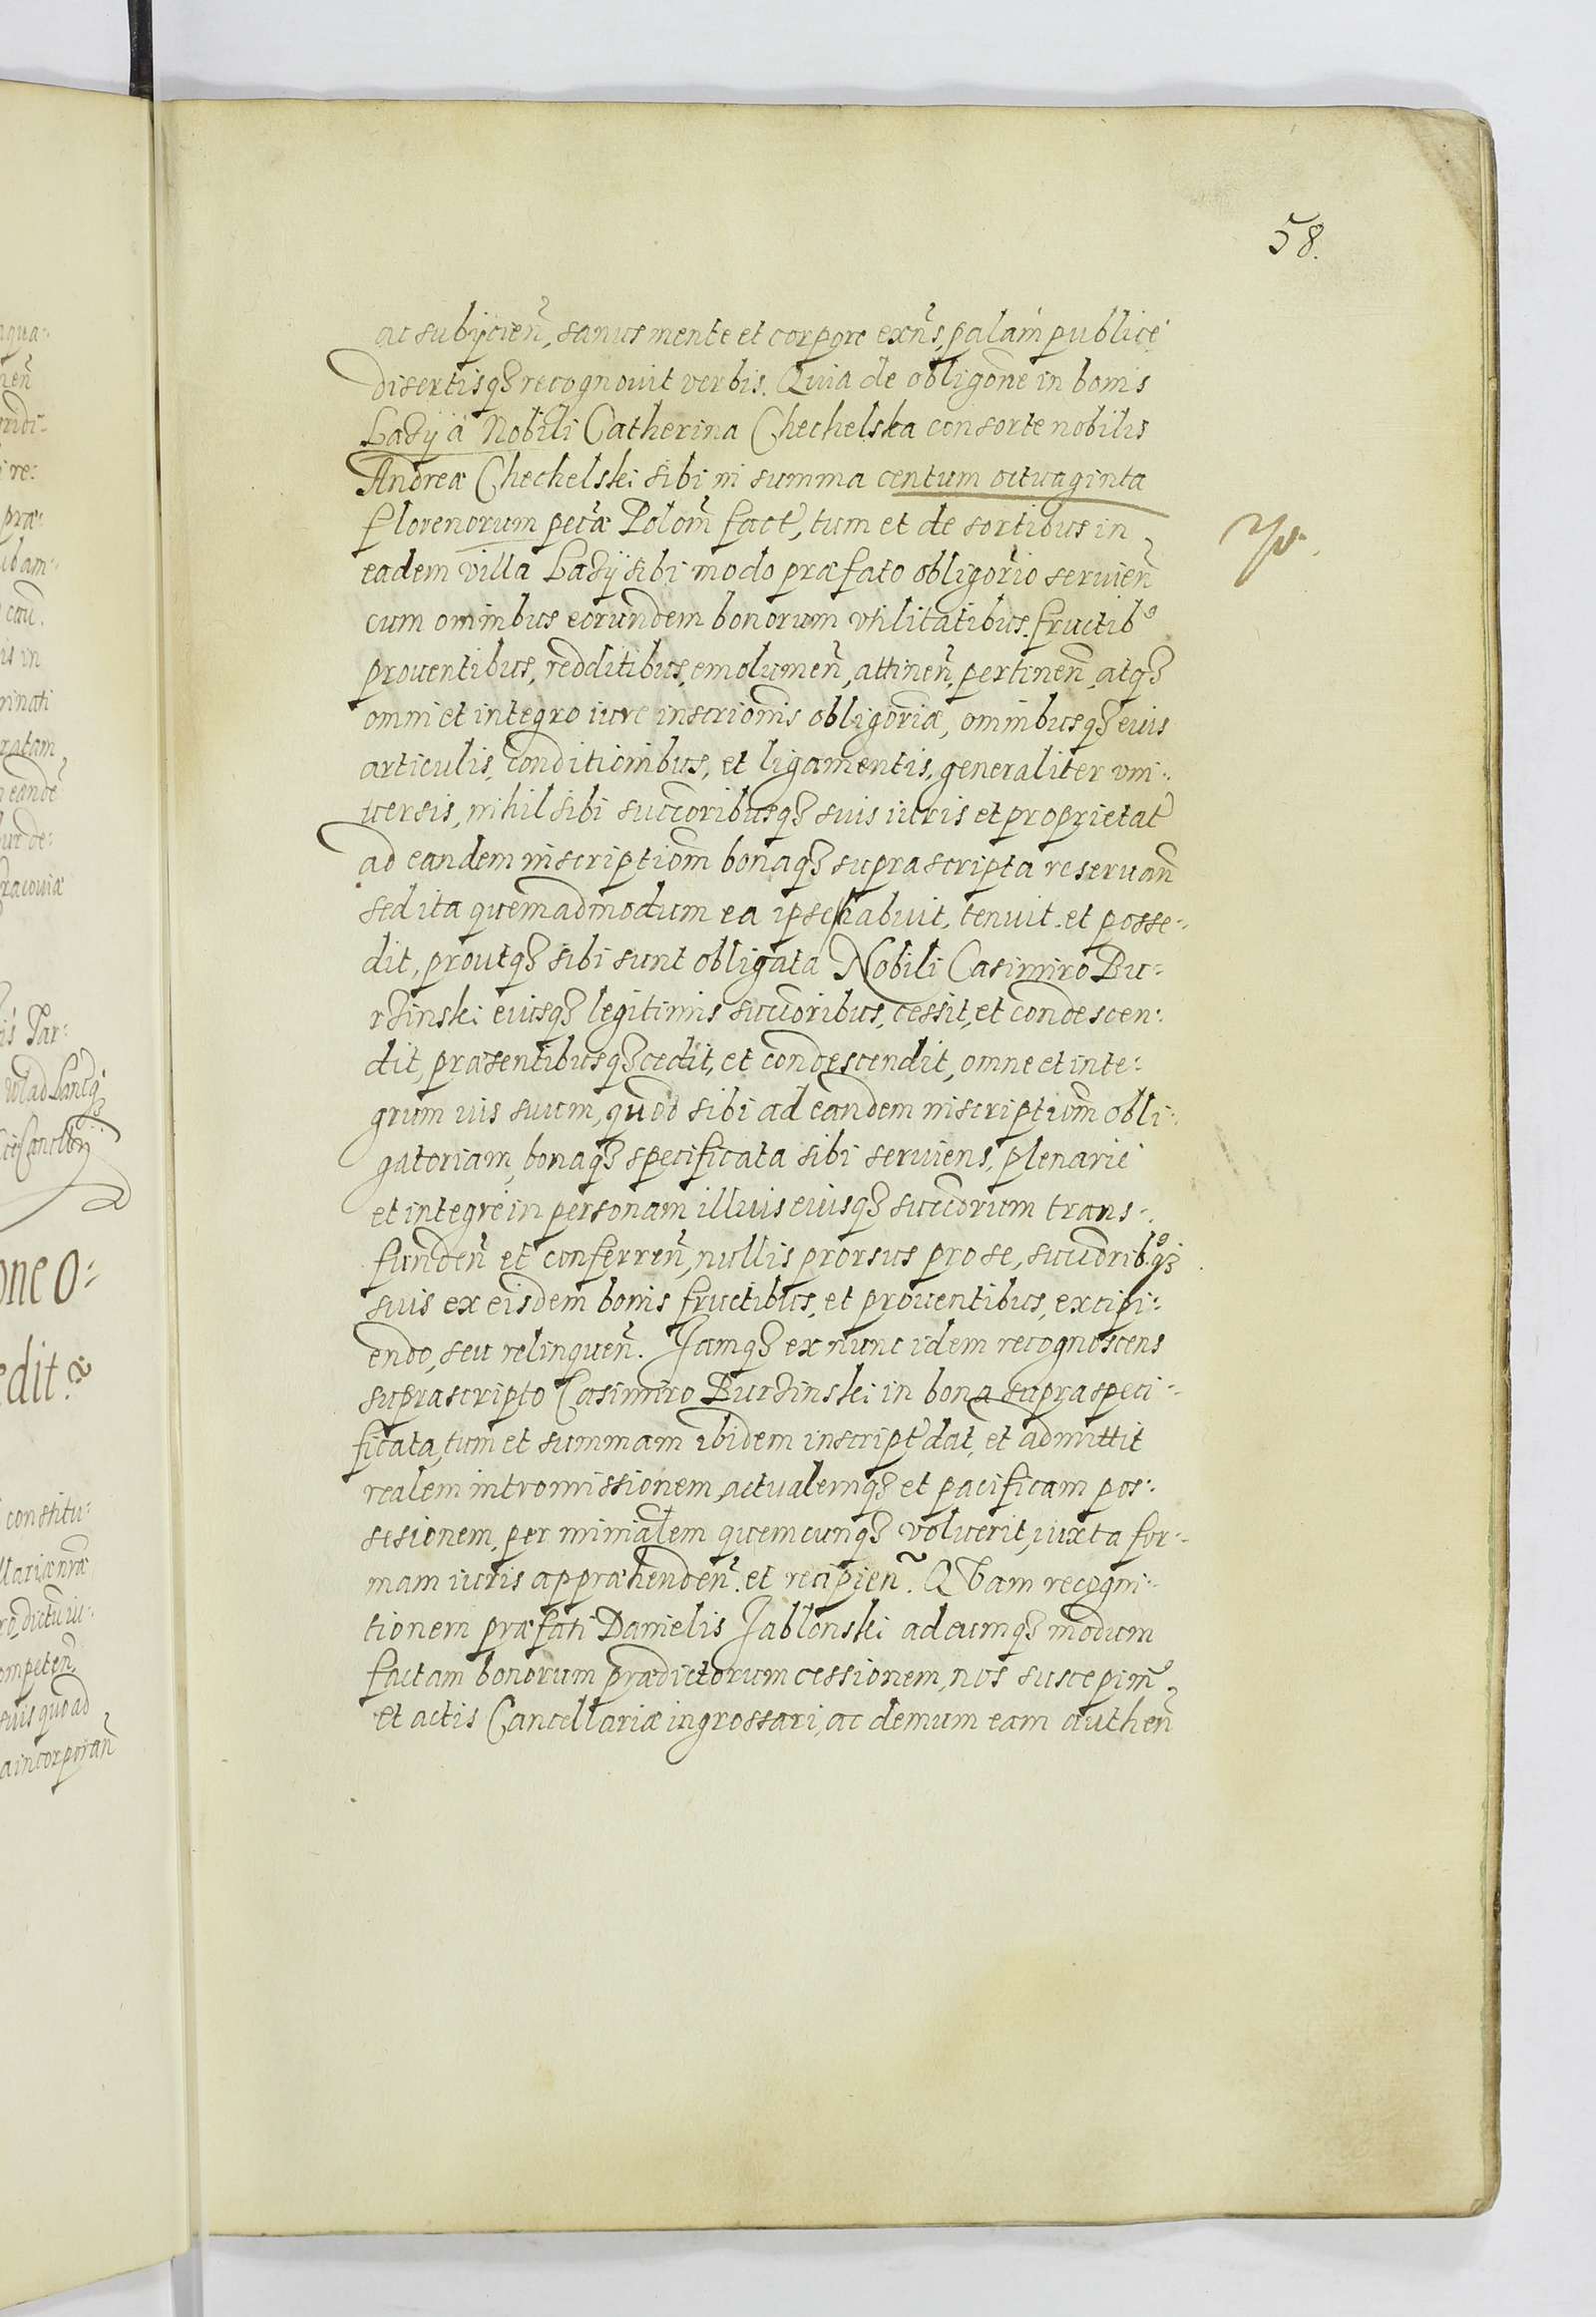 58.
ac subijcieñ, sanus mente et corpore exñs, palám publicé
disertisqꝫ recognovit verbis. Quia de obligõne in bonis
Lazy á Nobili Catherina Chechelska consorte nobilis
Andreæ Chechelski sibi in summa centum octuaginta
florenorum pecũæ Polom̃ fact̃, tum et de sortibus in
eadem villa Lazÿ sibi modo præfato obligõrio servieñ
cum omnibus eorundem bonorum vtilitatibus. fructibꝰ
proventibus, redditibus, emolumeñ, attineñ, pertineñ, atqꝫ
omni et integro iure inscriõnis obligõriæ, omnibusqꝫ eius
articulis, conditionibus, et ligamentis, generaliter vni-
versis, nihil sibi succõribusqꝫ suis iuris et proprietat̃
ad eandem inscriptiom̃ bonaqꝫ suprascripta reservañ
sed ita quemadmodum ea ipse habuit, tenuit, et posse-
dit, proutqꝫ sibi sunt obligata Nobili Casimiro Bu-
rzinski eiusqꝫ legitimis succõribus, cessit, et condescen-
dit, præsentibusqꝫ cedit, et condescendit, omne et inte-
grum ius suum, quod sibi ad eandem inscriptiom̃ obli-
gatoriam, bonaqꝫ specificata sibi serviens, plenarié
et integré in personam illius eiusqꝫ succõrum trans-
fundeñ et conferreñ, nullis prorsus pro se, succõribꝰqꝫ
suis ex eisdem bonis fructibus, et proventibus, excipi-
endo, seu relinqueñ. Jamqꝫ ex nunc idem recognoscens
suprascripto Casimiro Burzinski in bona supra speci-
ficata, tum et summam ibidem inscript̃ dat, et admittit
realem intromissionem, actualemqꝫ et pacificam pos-
sesionem, per minialem quemcunqꝫ voluerit, iuxta for-
mam iuris appræhendeñ. et recipieñ. QVam recogni-
tionem præfati Danielis Jablonski ad eumqꝫ modum
factam bonorum prædictorum cessionem, nos suscepimꝰ
et actis Cancellariæ ingrossari, ac demum eam autheñ